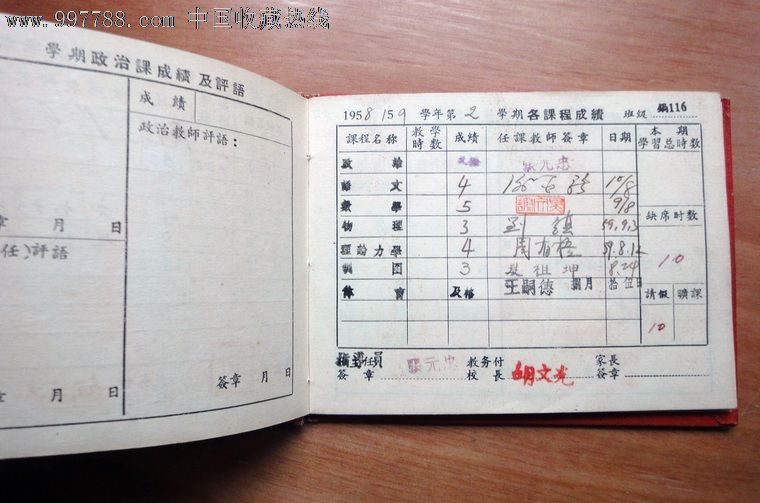 www.997788.com 中国收藏热线
學期政治課成績及評語
成績
政治教師評語：
章 月 日
任）評語
簽章 月 日
章 月 日
1958/59 學年第2 學期各課程成績 班級 116
課程名称 教學時数 成績 任課教師簽章 日期 本期學習总時数
政治 及格 元忠
語文 4 10/8
數學 5 9/8
物理 3 劉鎮 59.9.3
缺席时数
理論力學 4 周有 59.8.12
制图 3 祖坤 8.24
10
体育 及格 王嗣德 捌月拾伍日
請假 曠課
10
指導員 簽章 元忠 教务付校長 胡文光 家長簽章